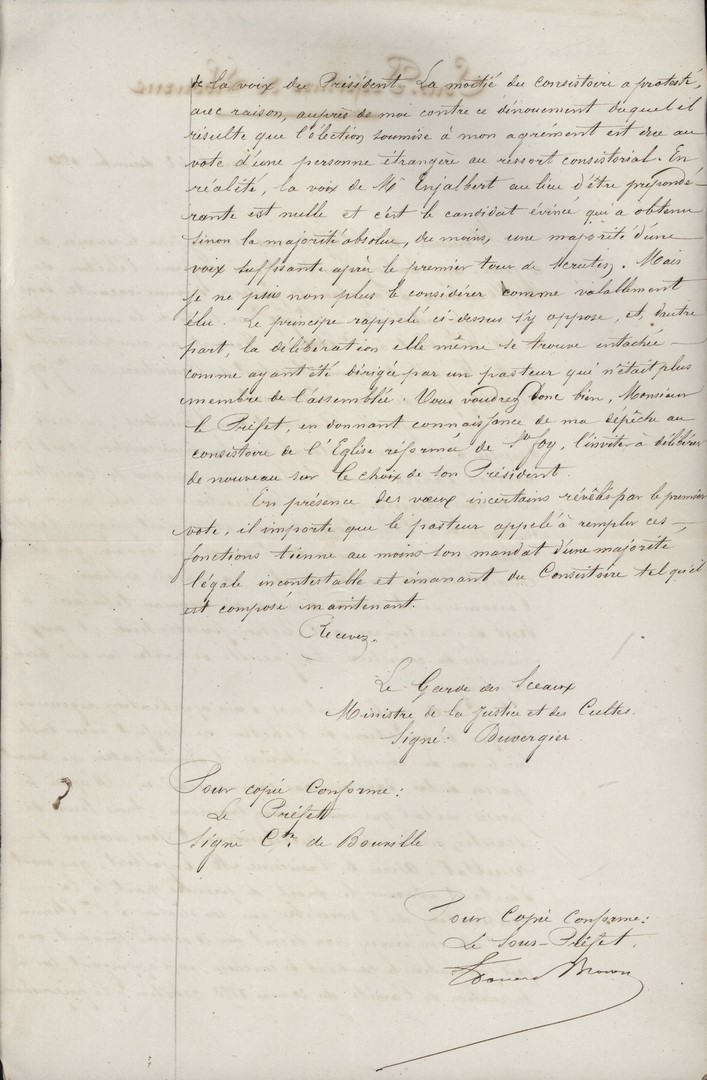 de la voix du Président La moitié du consistoire a protesté,
avec raison, auprès de moi contre ce dénouement duquel il
résulte que l'élection soumise à mon agrément est due au
vote d'une personne étrangère au ressort consistorial. En
réalité, la voix de Mr Enjalbert au lieu d'être prépondé-
rante est nulle et c'est le candidat évincé qui a obtenu
sinon la majorité absolue, du moins, une majorité d'une
voix suffisante après le premier tour de scrutin. Mais
je ne puis non plus le considérer comme valablement
élu. Le principe rappelé ci-dessus s'y oppose, et, d'autre
part, la délibération elle même se trouve entachée
comme ayant été dirigée par un pasteur qui n'était plus
membre de l'assemblée. Vous voudrez donc bien, Monsieur
le Préfet, en donnant connaissance de ma dépêche au
consistoire de l'Eglise réformée de Ste foy, l'inviter à délibérer
de nouveau sur le choix de son Président.
En présence des vœux incertains révélés par le premier
vote, il importe que le pasteur appelé à remplir ces
fonctions tienne au moins son mandat d'une majorité
légale incontestable et émanant du Consistoire tel qu'il
est composé maintenant.
Recevez.
Le Garde des Sceaux
Ministre de la Justice et des Cultes.
Signé: Duvergier.
Pour copie Conforme:
Le Préfet
Signé Cte de Bouville
Pour Copie Conforme:
Le Sous-Préfet.